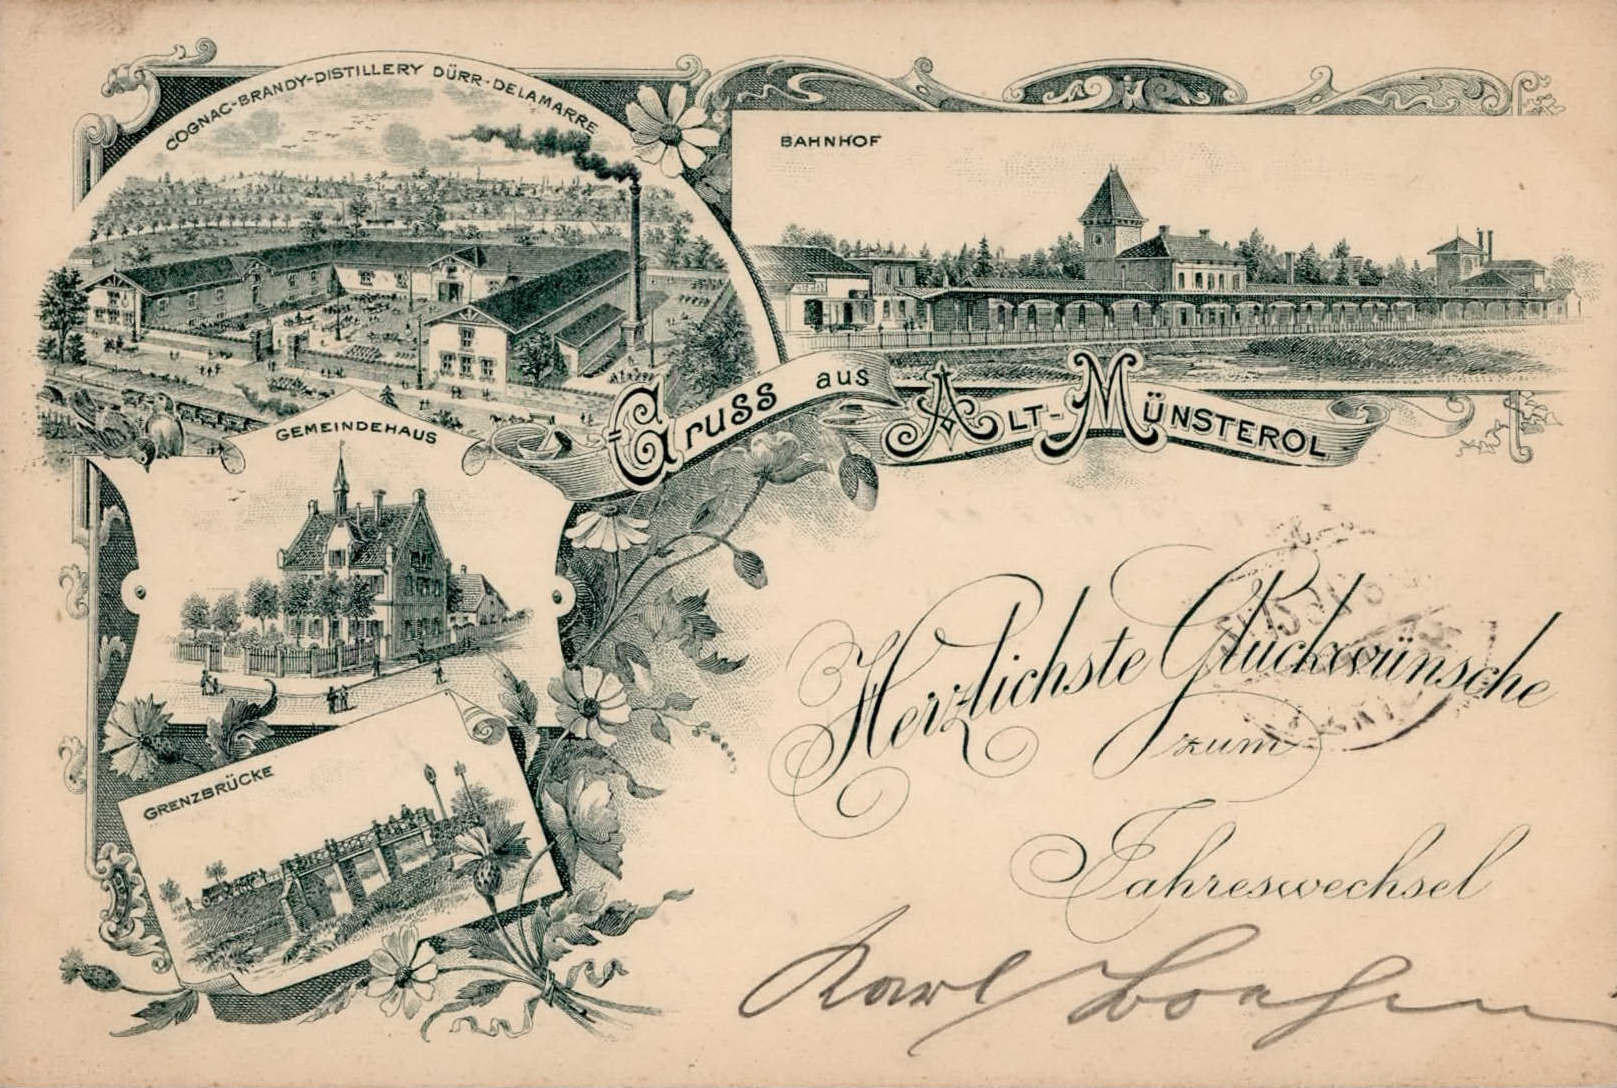 COGNAC-BRANDY-DISTILLERY DÜRR-DELAMARRE
BAHNHOF
Gruss aus Alt-Münsterol
GEMEINDEHAUS
GRENZBRÜCKE
Herzlichste Glückwünsche
zum
Jahreswechsel
Karl